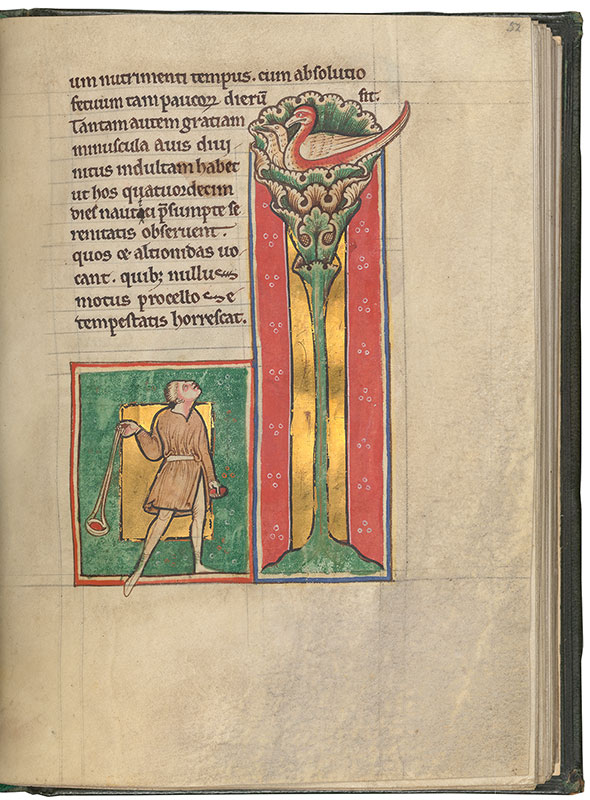 52
um nutrimenti tempus. cum absolutio
fetuum tam paucoꝝ dierū sit.
Tantam autem gratiam
minuscula auis diui
nitus indultam habet
ut hos quatuordecim
dies nautici p̄sumpte se
renitatis obseruent.
quos ⁊ altionidas uo
cant. quibꝫ nullus
motus procellose
tempestatis horrescat.